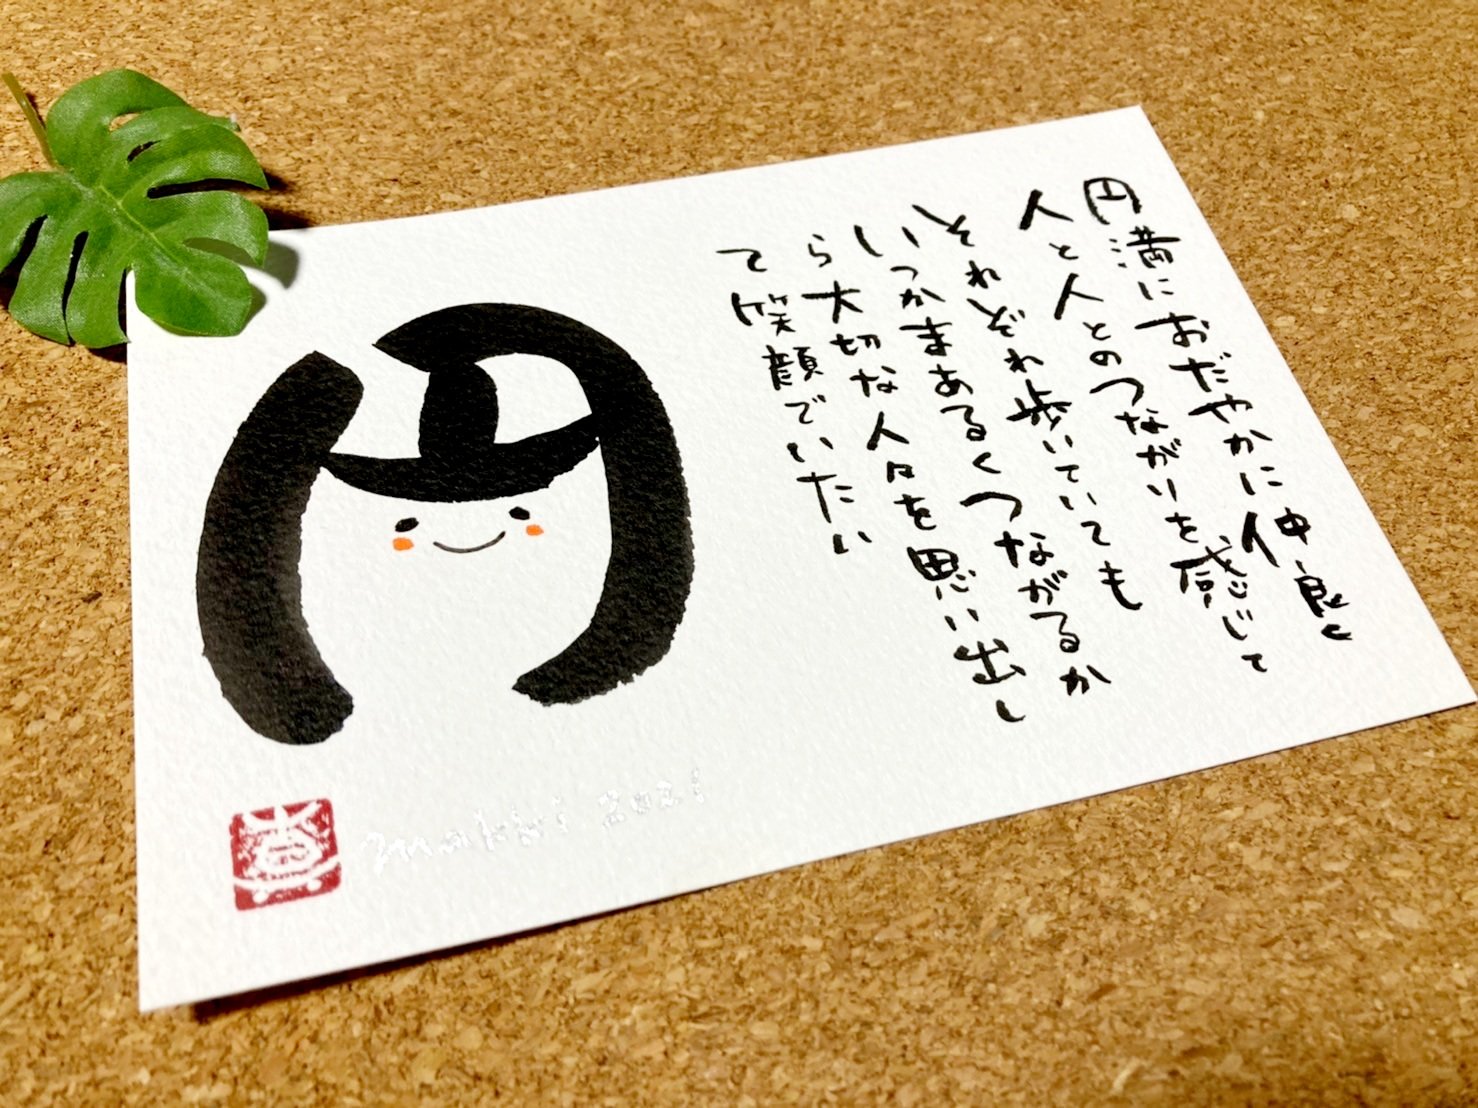 円満におだやかに仲良く
人と人とのつながりを感じて
それぞれ歩いていても
いつかまあるくつながるか
ら大切な人々を思い出し
て笑顔でいたい
円
makki 2021